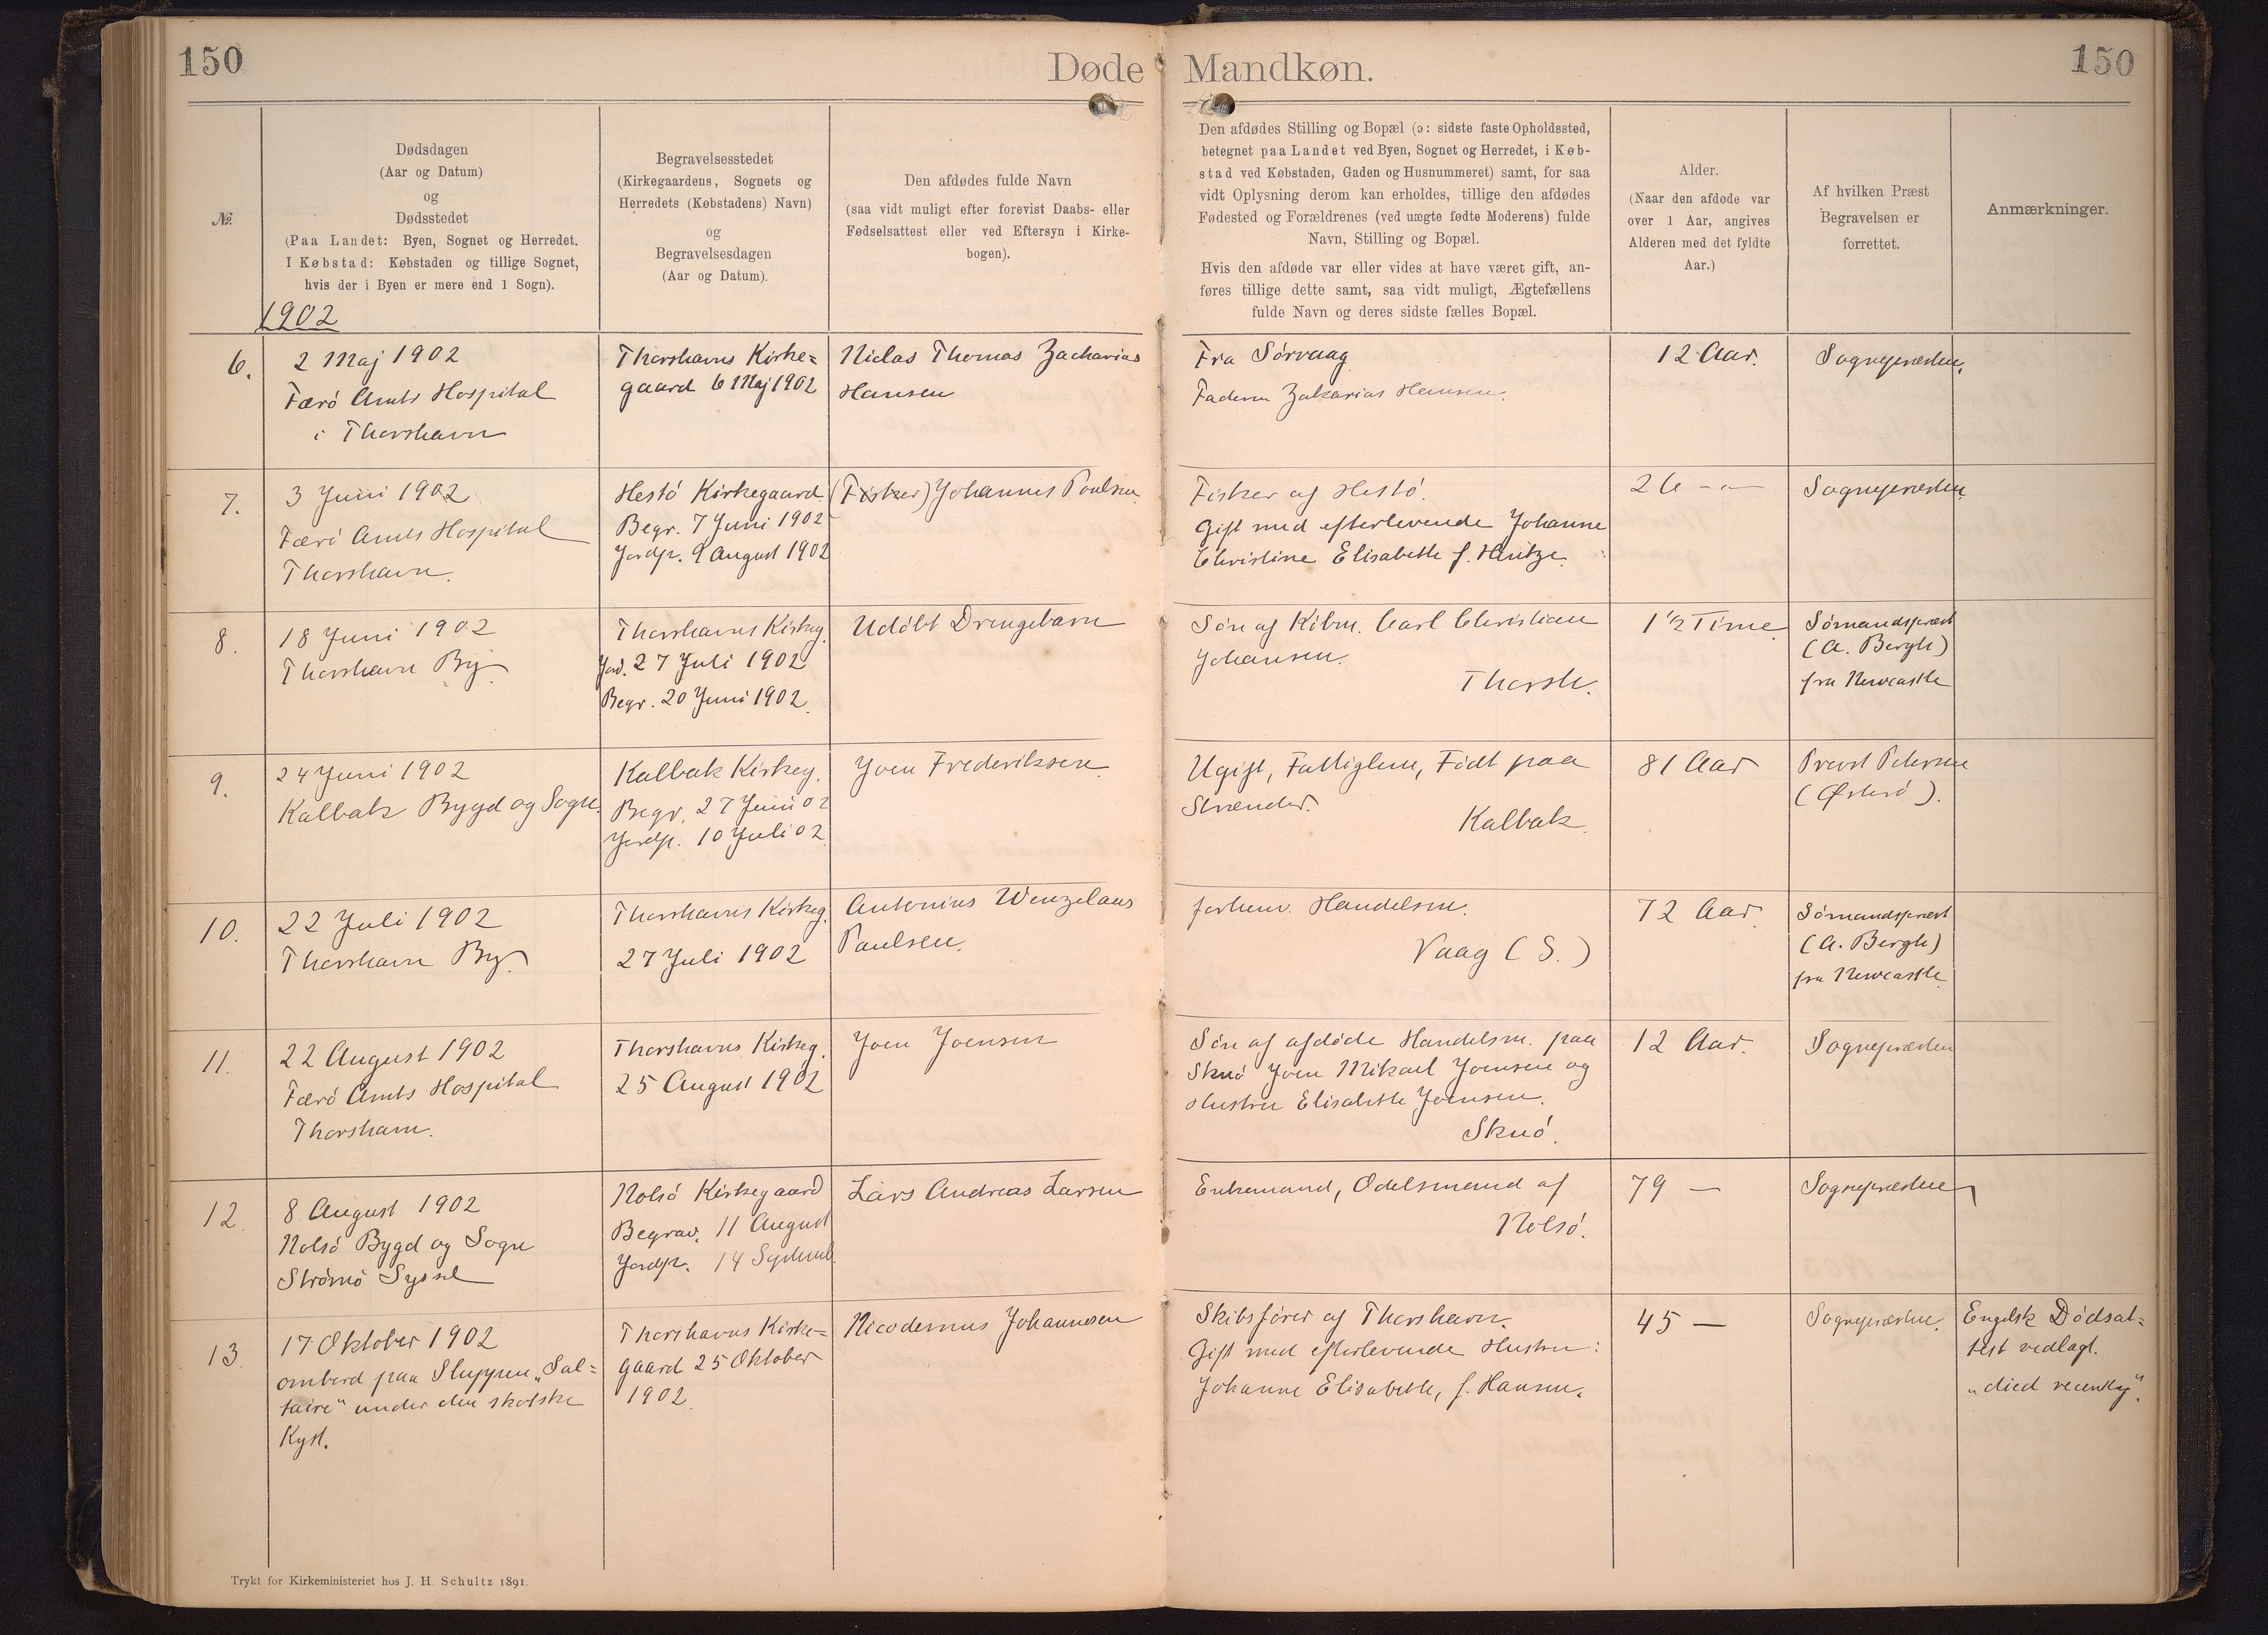 150
Døde Mandkøn.
150
№.
Dødsdagen
(Aar og Datum)
og
Dødsstedet
(Paa Landet: Byen, Sognet og Herredet.
I Købstad: Købstaden og tillige Sognet,
hvis der i Byen er mere end 1 Sogn).
Begravelsesstedet
(Kirkegaardens, Sognets og
Herredets (Købstadens) Navn)
og
Begravelsesdagen
(Aar og Datum).
Den afdødes fulde Navn
(saa vidt muligt efter forevist Daabs- eller
Fødselsattest eller ved Eftersyn i Kirke-
bogen).
Den afdødes Stilling og Bopæl (ɔ: sidste faste Opholdssted,
betegnet paa Landet ved Byen, Sognet og Herredet, i Køb-
stad ved Købstaden, Gaden og Husnummeret) samt, for saa
vidt Oplysning derom kan erholdes, tillige den afdødes
Fødested og Forældrenes (ved uægte fødte Moderens) fulde
Navn, Stilling og Bopæl.
Hvis den afdøde var eller vides at have været gift, an-
føres tillige dette samt, saa vidt muligt, Ægtefællens
fulde Navn og deres sidste fælles Bopæl.
Alder.
(Naar den afdøde var
over 1 Aar, angives
Alderen med det fyldte
Aar.)
Af hvilken Præst
Begravelsen er
forrettet.
Anmærkninger.
1902
6.
2 Maj 1902
Færö Amts Hospital
i Thorshavn
Thorshavns Kirke=
gaard 6 Maj 1902
Niclas Thomas Zacharias
Hansen
Fra Sörvaag
Faderen Zakarias Hansen.
12 Aar.
Sognepræsten.
7.
3 Juni 1902
Færö Amts Hospital
Thorshavn.
Hestö Kirkegaard.
Begr. 7 Juni 1902
Jordp. 9 August 1902
(Fisker) Johannes Poulsen
Fisker af Hestö.
Gift med efterlevende Johanne
Christine Elisabeth f. Hentze.
26 - " -
Sognepræsten
8.
18 Juni 1902
Thorshavn By.
Thorshavns Kirkeg.
Jord. 27 Juli 1902
Begr. 20 Juni 1902.
Udöbt Drengebarn
Sön af Köbm. Carl Christian
Johansen.
Thorsh.
1 1/2 Time
Sömandspræst
(A. Bergh)
fra Newcastle
9.
24 Juni 1902
Kalbak Bygd og Sogn.
Kalbak Kirkeg.
Begr. 27 Juni 02
Jordp. 10 Juli 02
Joen Frederiksen
Ugift, Fattiglem, Födt paa
Strænder.
Kalbak.
81 Aar
Provst Petersen
(Österö).
10.
22 Juli 1902
Thorshavn By.
Thorshavns Kirkeg.
27 Juli 1902
Antonius Wenzelaus
Paulsen.
forhenv. Handelsm.
Vaag (S.)
72 Aar.
Sömandspræst
(A. Bergh)
fra Newcastle
11.
22 August 1902
Færö Amts Hospital
Thorshavn.
Thorshavns Kirkeg.
25 August 1902
Joen Joensen
Sön af afdöde Handelsm. paa
Skuö Joen Mikael Joensen og
Hustru Elisabeth Joensen.
Skuö.
12 Aar.
Sognepræsten
12.
8 August 1902
Nolsö Bygd og Sogn
Strömö Syssel
Nolsö Kirkegaard
Begrav. 11 August
Jordp. 14 Septemb
Lars Andreas Larsen
Enkemand, Odelsmand af
Nolsö.
79 —
Sognepræsten
13.
17 Oktober 1902
ombord paa Sluppen „Sal=
taire" under den skotske
Kyst.
Thorshavns Kirke=
gaard 25 Oktober
1902.
Nicodemus Johannesen
Skibsförer af Thorshavn.
Gift med efterlevende Hustru:
Johanne Elisabeth, f. Hansen.
45 —
Sognepræsten.
Engelsk Dödsat=
test vedlagt.
„died recently".
Trykt for Kirkeministeriet hos J. H. Schultz 1891.